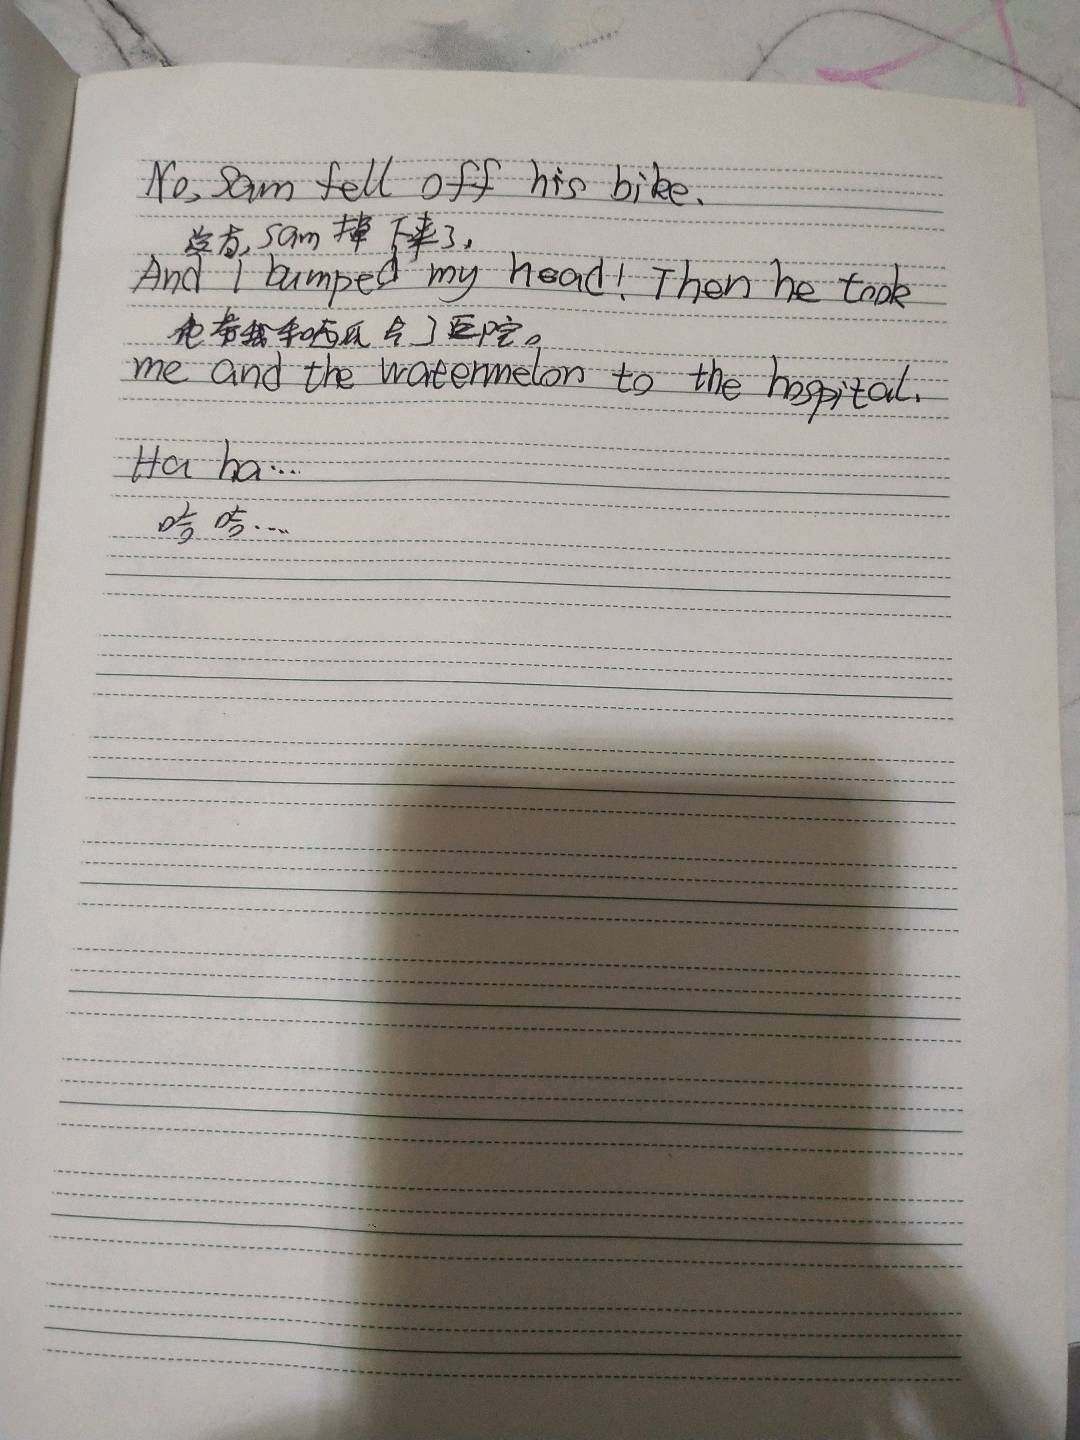 No, Sam fell off his bike.
Sam 掉下来了,
And I bumped my head! Then he took
他带我和西瓜去了医院。
me and the watermelon to the hospital.
Ha ha...
哈哈...